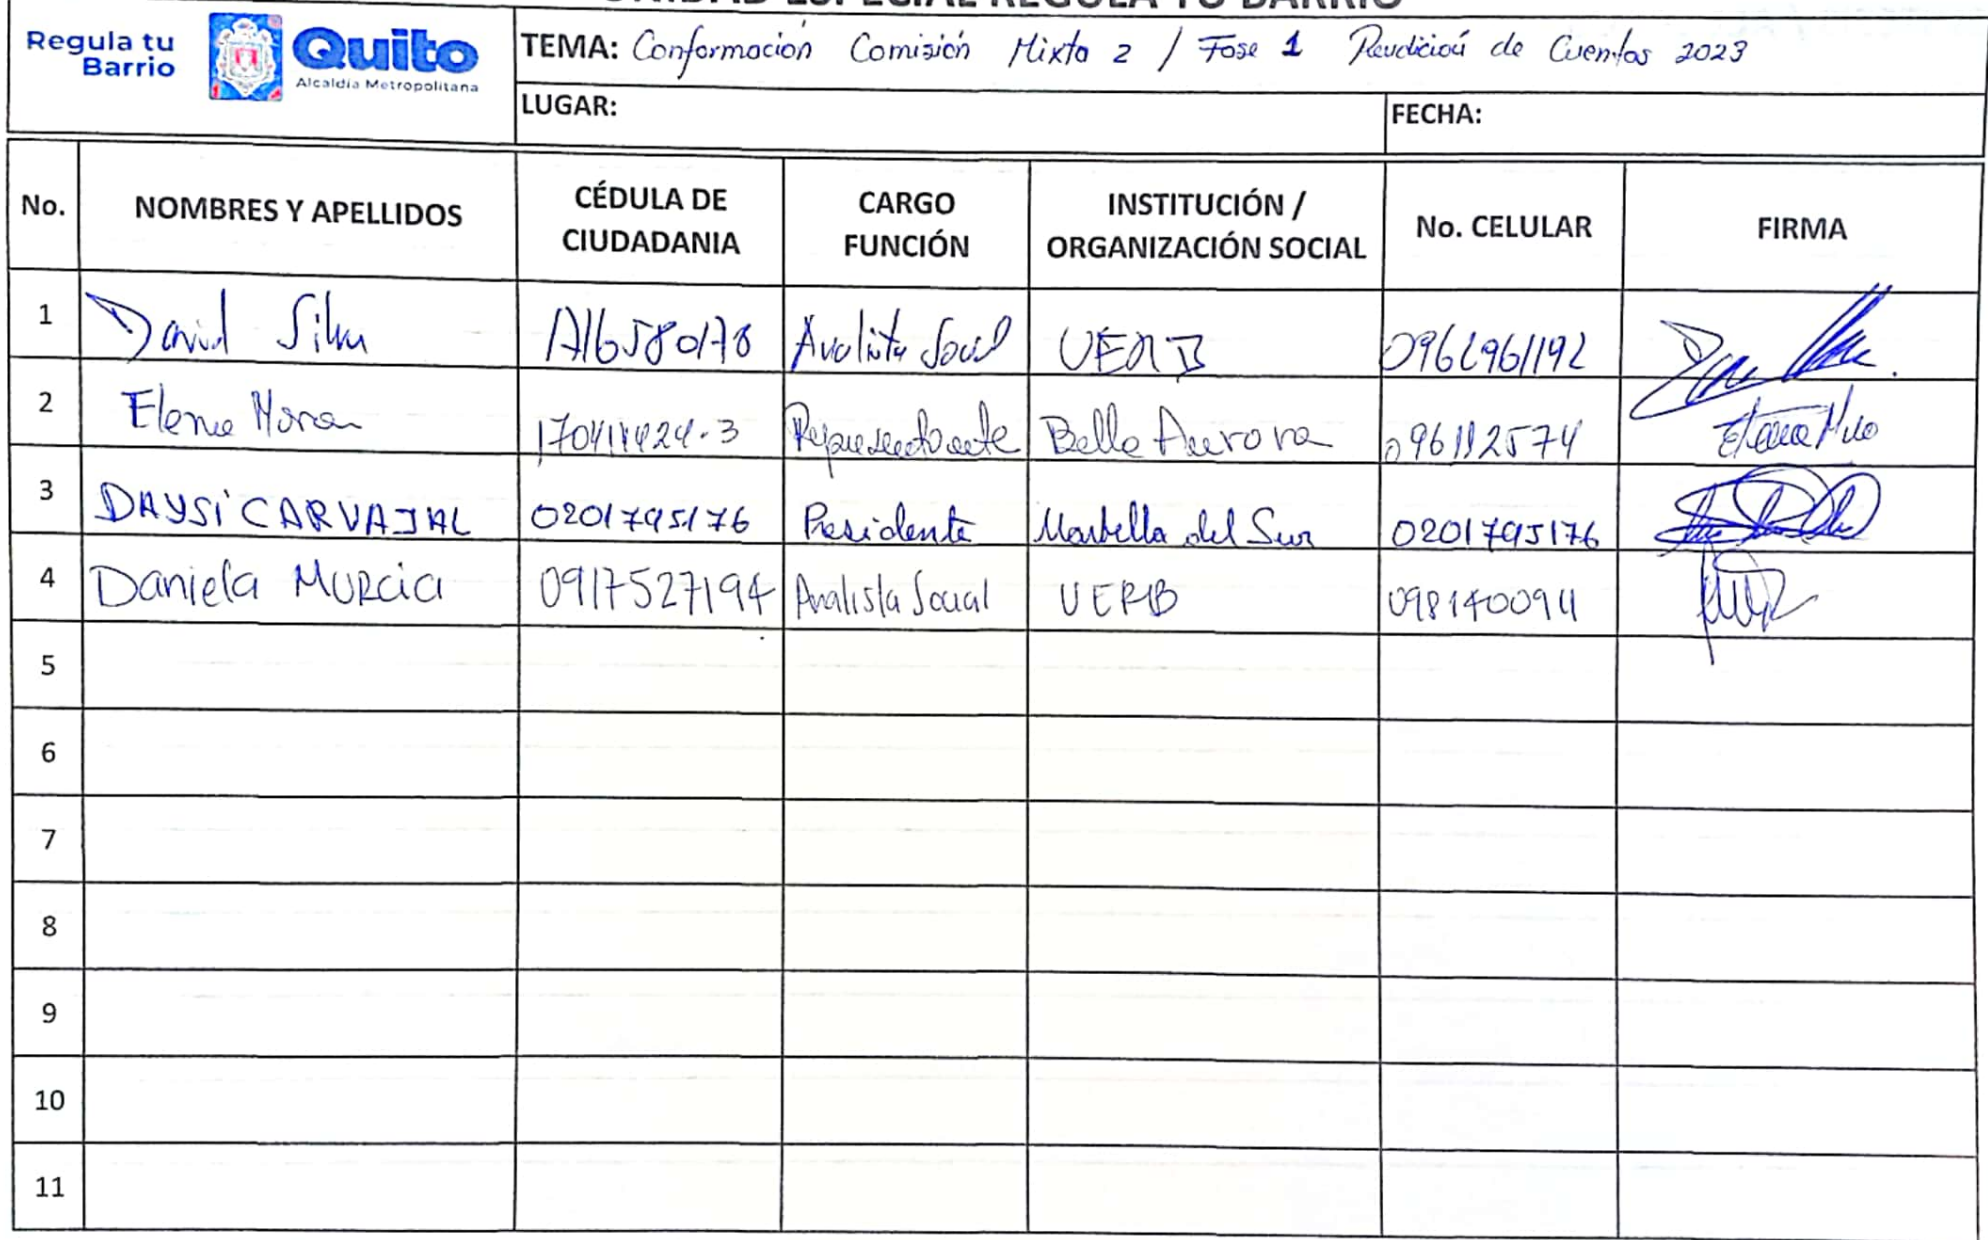 UNIDAD ESPECIAL REGULA TU BARRIO
Regula tu Barrio
Quito
Alcaldía Metropolitana
TEMA: Conformación Comisión Mixta 2 / Fase 1 Rendición de Cuentas 2023
LUGAR: FECHA:
No. NOMBRES Y APELLIDOS CÉDULA DE CIUDADANIA CARGO FUNCIÓN INSTITUCIÓN / ORGANIZACIÓN SOCIAL No. CELULAR FIRMA
1 David Silva Analista Social UERB 0962961192
2 Elena Moran Representante Bella Aurora 096112574
3 DAYSi CARVAJAL 0201795176 Presidenta Marbella del Sur 0201795176
4 Daniela Murcia 0917527194 Analista Social UERB 0981400911
5
6
7
8
9
10
11